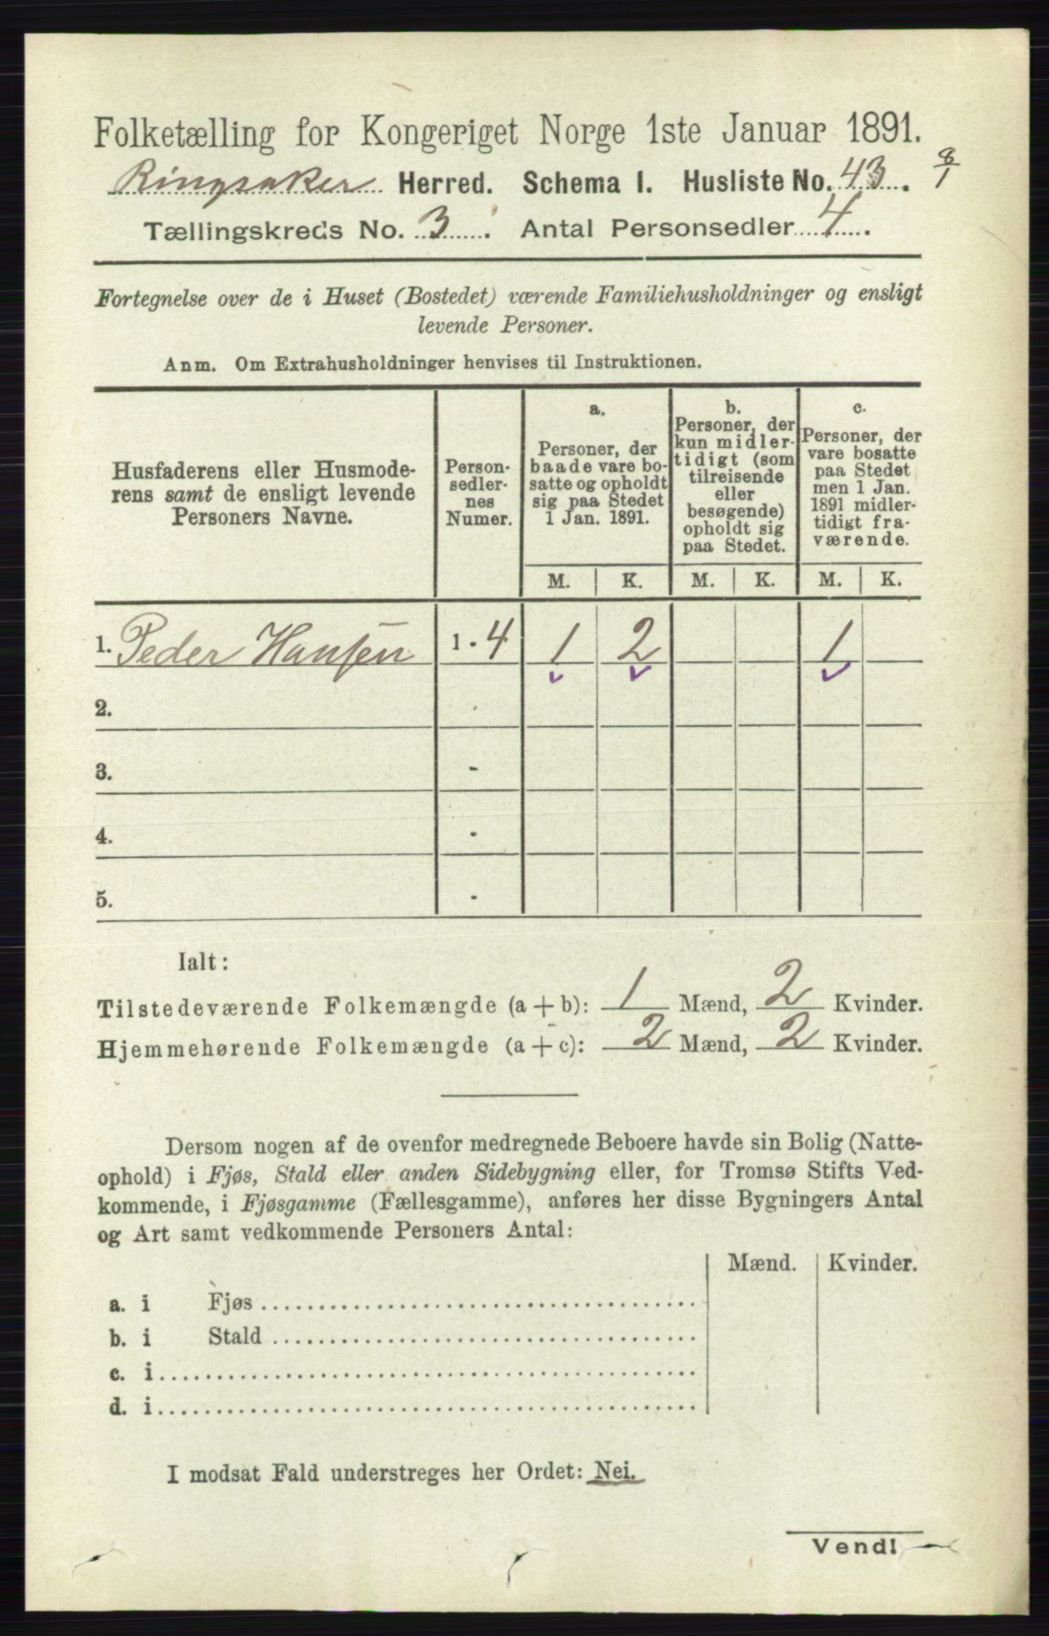 Folketælling for Kongeriget Norge 1ste Januar 1891.
Ringsaker Herred. Schema I. Husliste No. 43. 8/1
Tællingskreds No. 3. Antal Personsedler 4.
Fortegnelse over de i Huset (Bostedet) værende Familiehusholdninger og ensligt
levende Personer.
Anm. Om Extrahusholdninger henvises til Instruktionen.
Husfaderens eller Husmode-
rens samt de ensligt levende
Personers Navne.
Person-
sedler-
nes
Numer.
a.
Personer, der
baade vare bo-
satte og opholdt
sig paa Stedet
1 Jan. 1891.
b.
Personer, der
kun midler-
tidigt (som
tilreisende
eller
besøgende)
opholdt sig
paa Stedet.
c.
Personer, der
vare bosatte
paa Stedet
men 1 Jan.
1891 midler-
tidigt fra-
værende.
M. K. M. K. M. K.
1. Peder Hansen 1 - 4 1 2 1
2.
3. -
4. -
5. -
Ialt:
Tilstedeværende Folkemængde (a + b): 1 Mænd, 2 Kvinder.
Hjemmehørende Folkemængde (a + c): 2 Mænd, 2 Kvinder.
Dersom nogen af de ovenfor medregnede Beboere havde sin Bolig (Natte-
ophold) i Fjøs, Stald eller anden Sidebygning eller, for Tromsø Stifts Ved-
kommende, i Fjøsgamme (Fællesgamme), anføres her disse Bygningers Antal
og Art samt vedkommende Personers Antal:
Mænd. Kvinder.
a. i Fjøs
b. i Stald
c. i
d. i
I modsat Fald understreges her Ordet: Nei.
Vend!